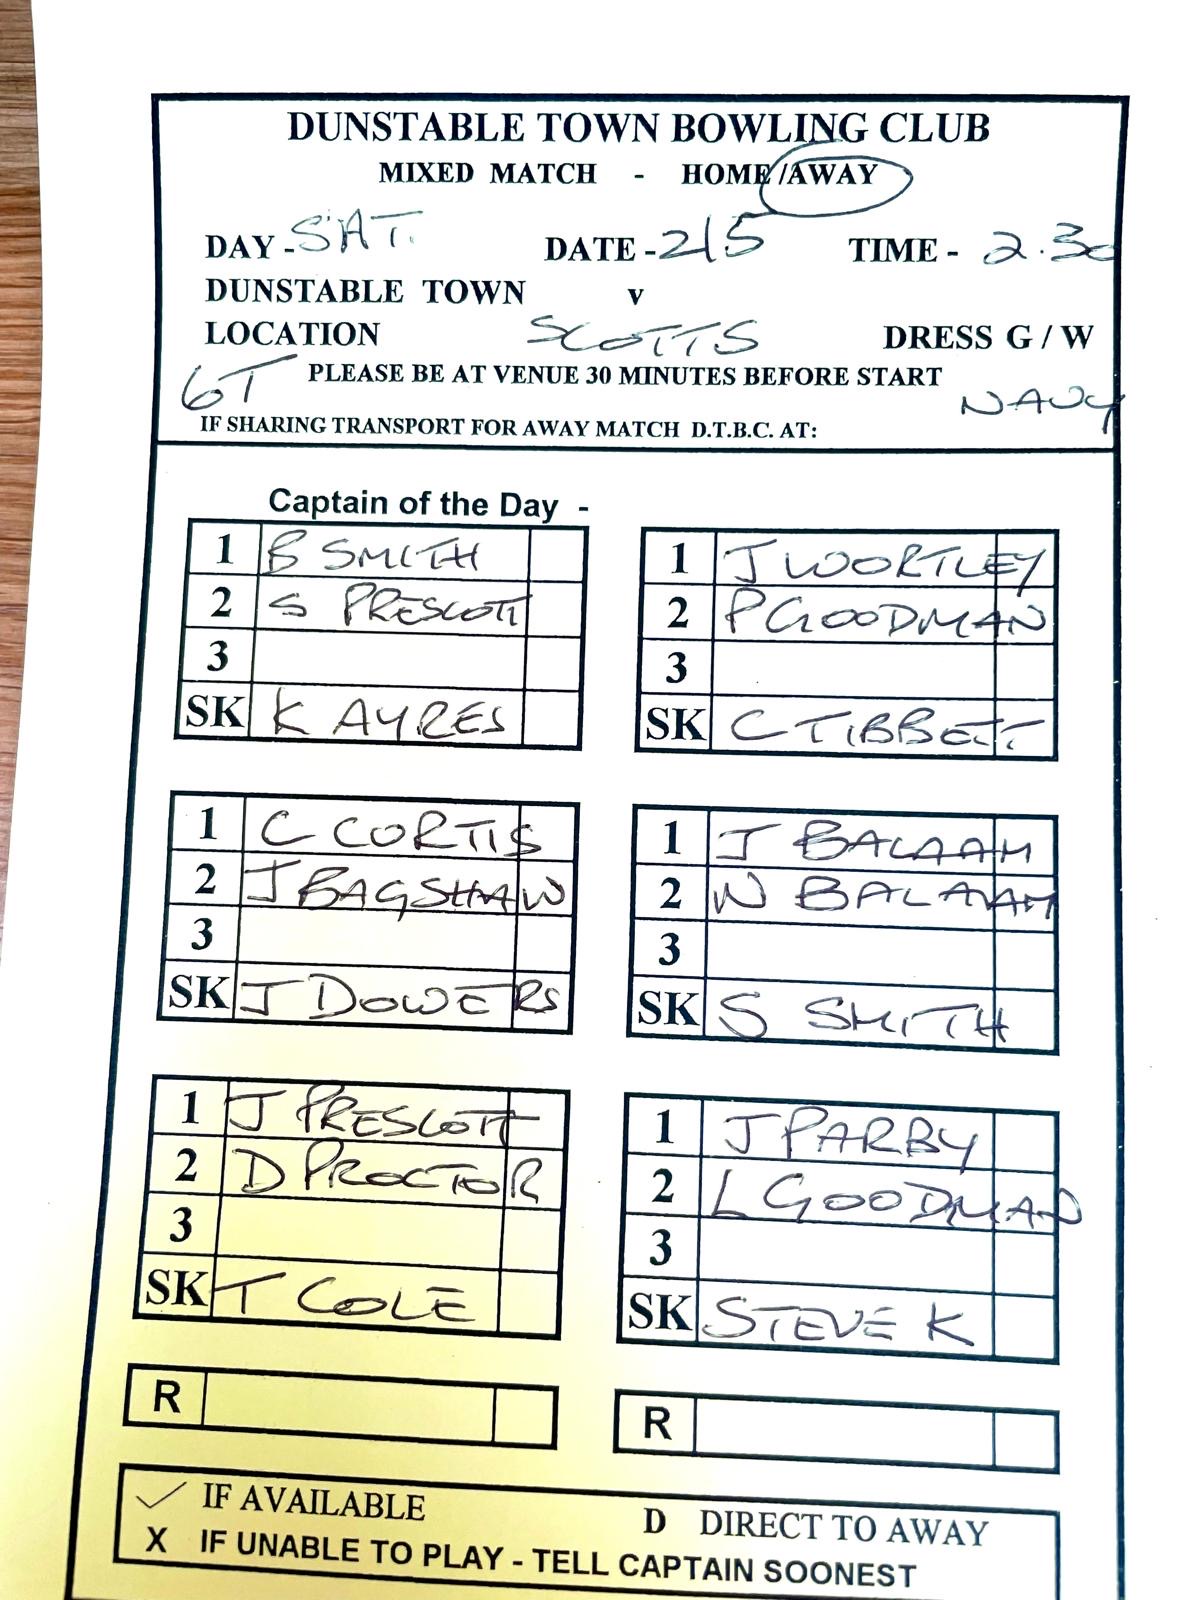 DUNSTABLE TOWN BOWLING CLUB
MIXED MATCH - HOME/AWAY
DAY - SAT. DATE - 2/5 TIME - 2.30
DUNSTABLE TOWN v
LOCATION SCOTTS DRESS G / W
6T PLEASE BE AT VENUE 30 MINUTES BEFORE START NAVY
IF SHARING TRANSPORT FOR AWAY MATCH D.T.B.C. AT:
Captain of the Day -
1 B SMITH
2 S PRESCOTT
3
SK K AYRES
1 J WORTLEY
2 P GOODMAN
3
SK C TIBBETT
1 C CORTIS
2 J BAGSHAW
3
SK J DOWERS
1 J BALAAM
2 W BALAAM
3
SK S SMITH
1 J PRESCOTT
2 D PROCTOR
3
SK T COLE
1 J PARBY
2 L GOODMAN
3
SK STEVE K
R
R
✓ IF AVAILABLE D DIRECT TO AWAY
X IF UNABLE TO PLAY - TELL CAPTAIN SOONEST